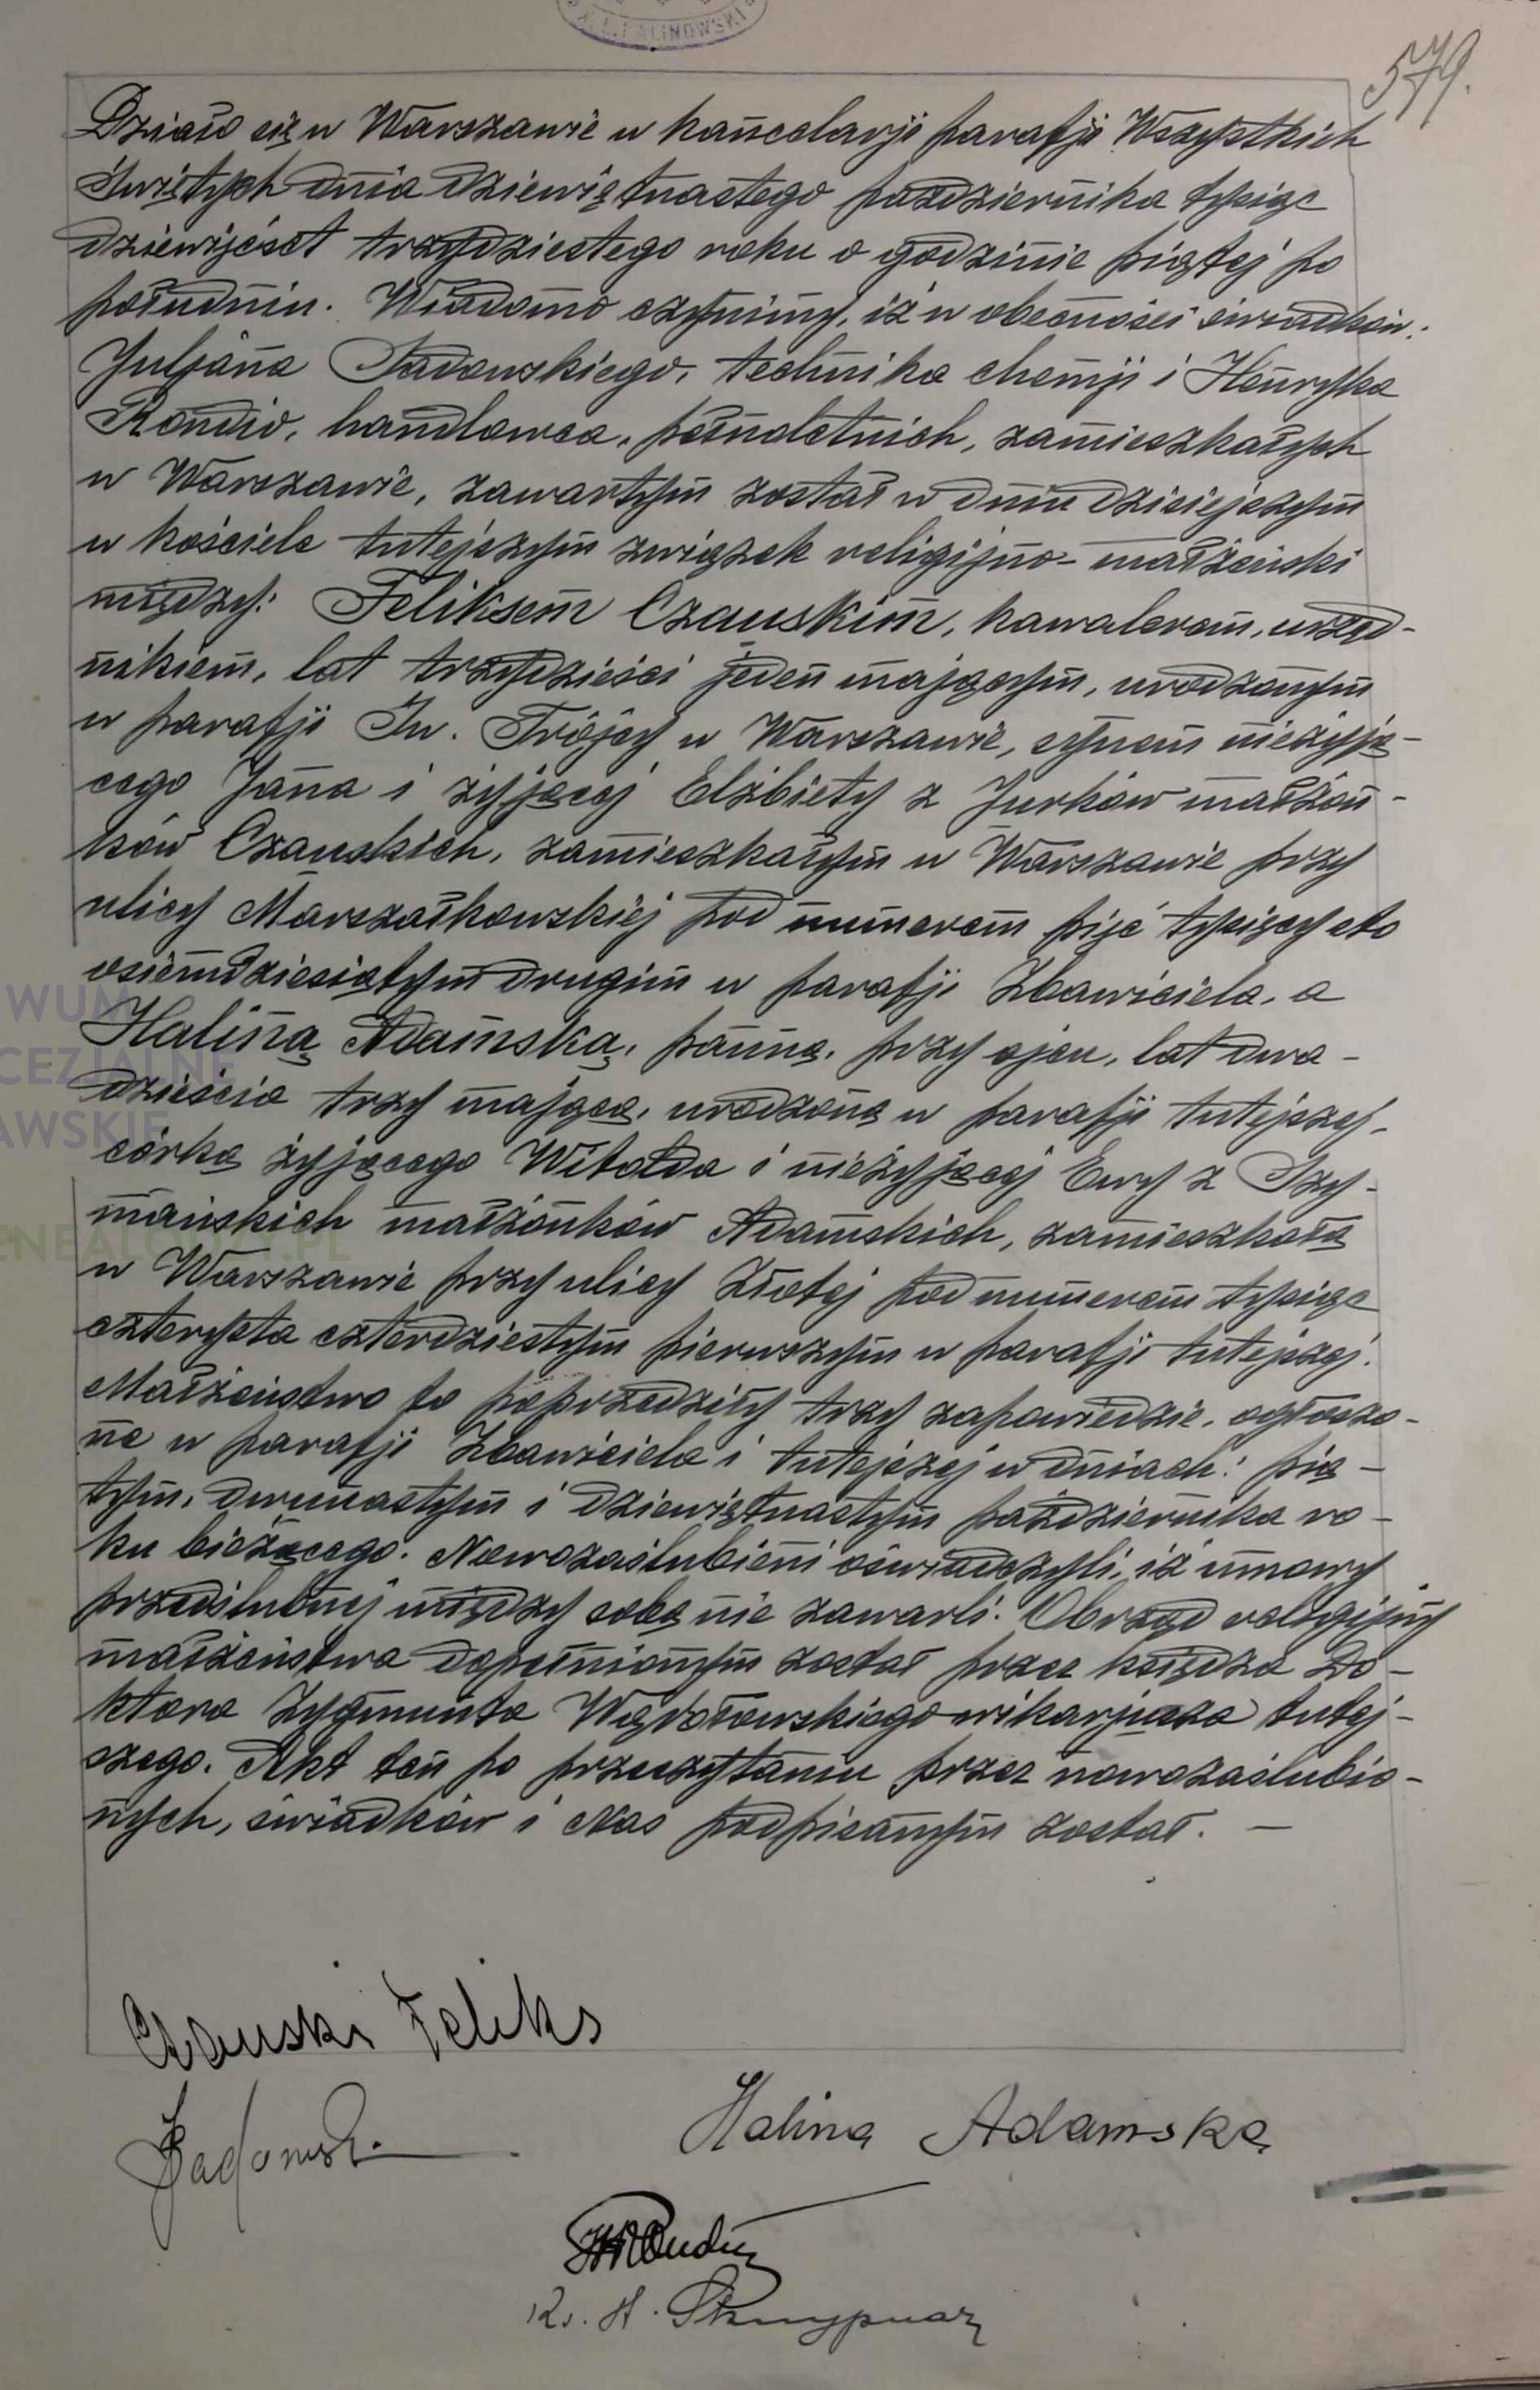 K. L. KALINOWSKI
579.
Działo się w Warszawie w kancelarji parafji Wszystkich
Świętych dnia dziewiętnastego października tysiąc
dziewięćset trzydziestego roku o godzinie piątej po
południu. Wiadomo czynimy, iż w obecności świadków:
Juljana Sadowskiego, technika chemji i Henryka
Rondio, handlowca, pełnoletnich, zamieszkałych
w Warszawie, zawartym został w dniu dzisiejszym
w kościele tutejszym związek religijno-małżeński
między: Feliksem Czauskim, kawalerem, urzęd-
nikiem, lat trzydzieści jeden mającym, urodzonym
w parafji Św. Trójcy w Warszawie, synem nieżyją-
cego Jana i żyjącej Elżbiety z Jurków małżon-
ków Czauskich, zamieszkałym w Warszawie przy
ulicy Marszałkowskiej pod numerem pięć tysięcy sto
osiemdziesiątym drugim w parafji Zbawiciela, a
Haliną Adamską, panną, przy ojcu, lat dwa-
dzieścia trzy mającą, urodzoną w parafji tutejszej,
córką żyjącego Witolda i nieżyjącej Ewy z Szy-
mańskich małżonków Adamskich, zamieszkałą
w Warszawie przy ulicy Złotej pod numerem tysiąc
czterysta czterdziestym pierwszym w parafji tutejszej.
Małżeństwo to poprzedziły trzy zapowiedzie, ogłoszo-
ne w parafji Zbawiciela i tutejszej w dniach: pią-
tym, dwunastym i dziewiętnastym października ro-
ku bieżącego. Nowozaślubieni oświadczyli, iż umowy
przedślubnej między sobą nie zawarli. Obrząd religijny
małżeństwa dopełnionym został przez księdza Do-
ktora Zygmunta Wądołowskiego wikarjusza tutej-
szego. Akt ten po przeczytaniu przez nowozaślubio-
nych, świadków i Nas podpisanym został. —
WUM
CEZJALNE
AWSKIE
Czauski Feliks
Sadowski
Halina Adamska
HRondio
Ks. H.